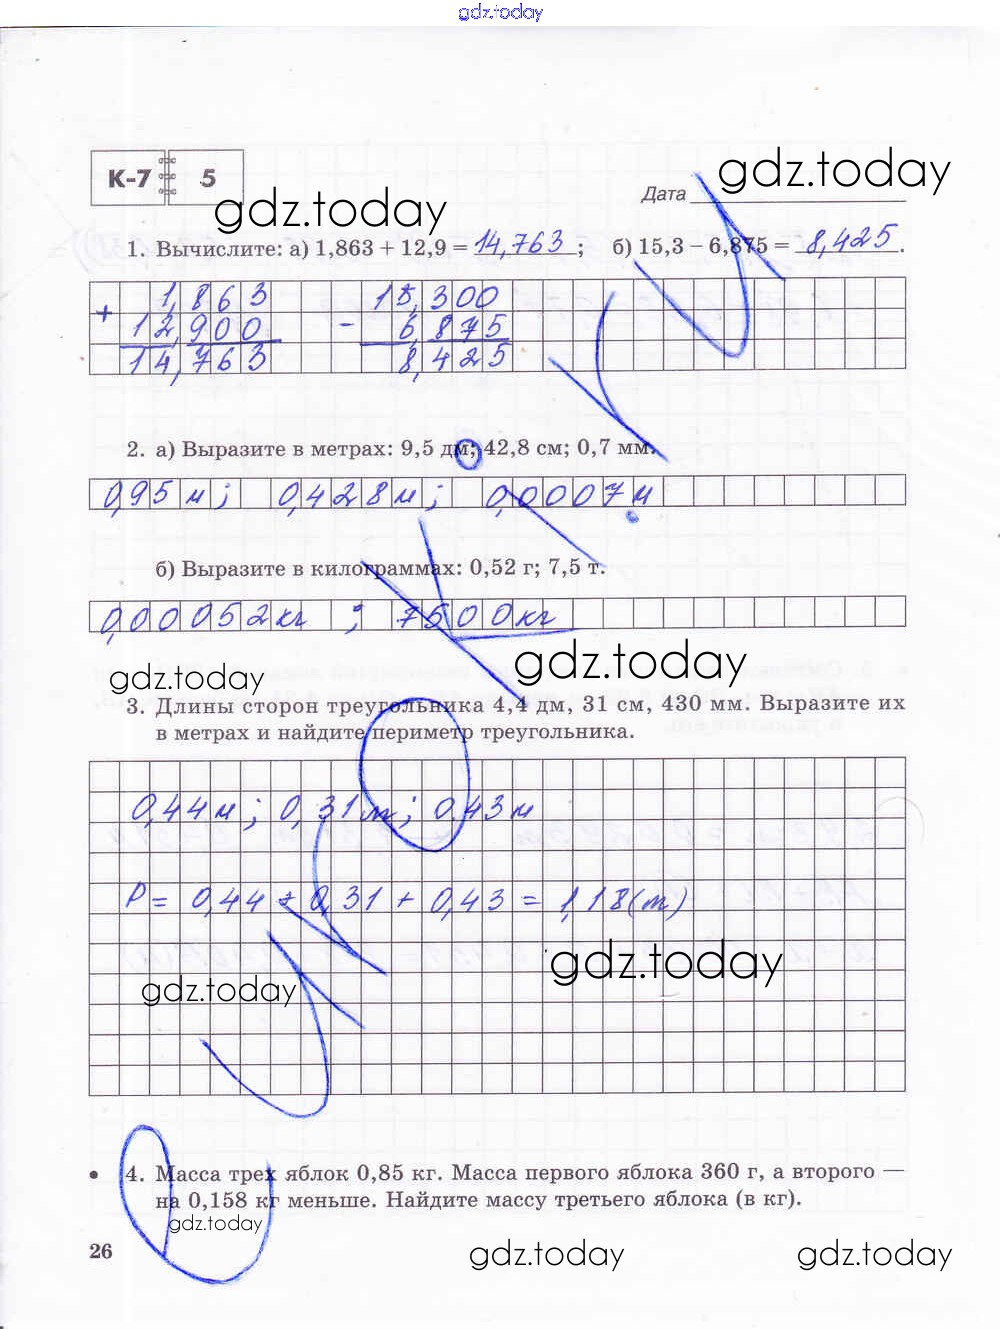 gdz.today
К-7 5
gdz.today
Дата
gdz.today
1. Вычислите: а) 1,863 + 12,9 = 14,763 ; б) 15,3 – 6,875 = 8,425 .
1,863 15,300
+ 12,900 - 6,875
14,763 8,425
2. а) Выразите в метрах: 9,5 дм; 42,8 см; 0,7 мм.
0,95 м; 0,428 м; 0,0007 м
б) Выразите в килограммах: 0,52 г; 7,5 т.
0,00052 кг ; 7500 кг
gdz.today
gdz.today
3. Длины сторон треугольника 4,4 дм, 31 см, 430 мм. Выразите их
в метрах и найдите периметр треугольника.
0,44 м ; 0,31 м ; 0,43 м
P = 0,44 + 0,31 + 0,43 = 1,18 (м)
gdz.today
gdz.today
• 4. Масса трех яблок 0,85 кг. Масса первого яблока 360 г, а второго —
на 0,158 кг меньше. Найдите массу третьего яблока (в кг).
gdz.today
26
gdz.today
gdz.today